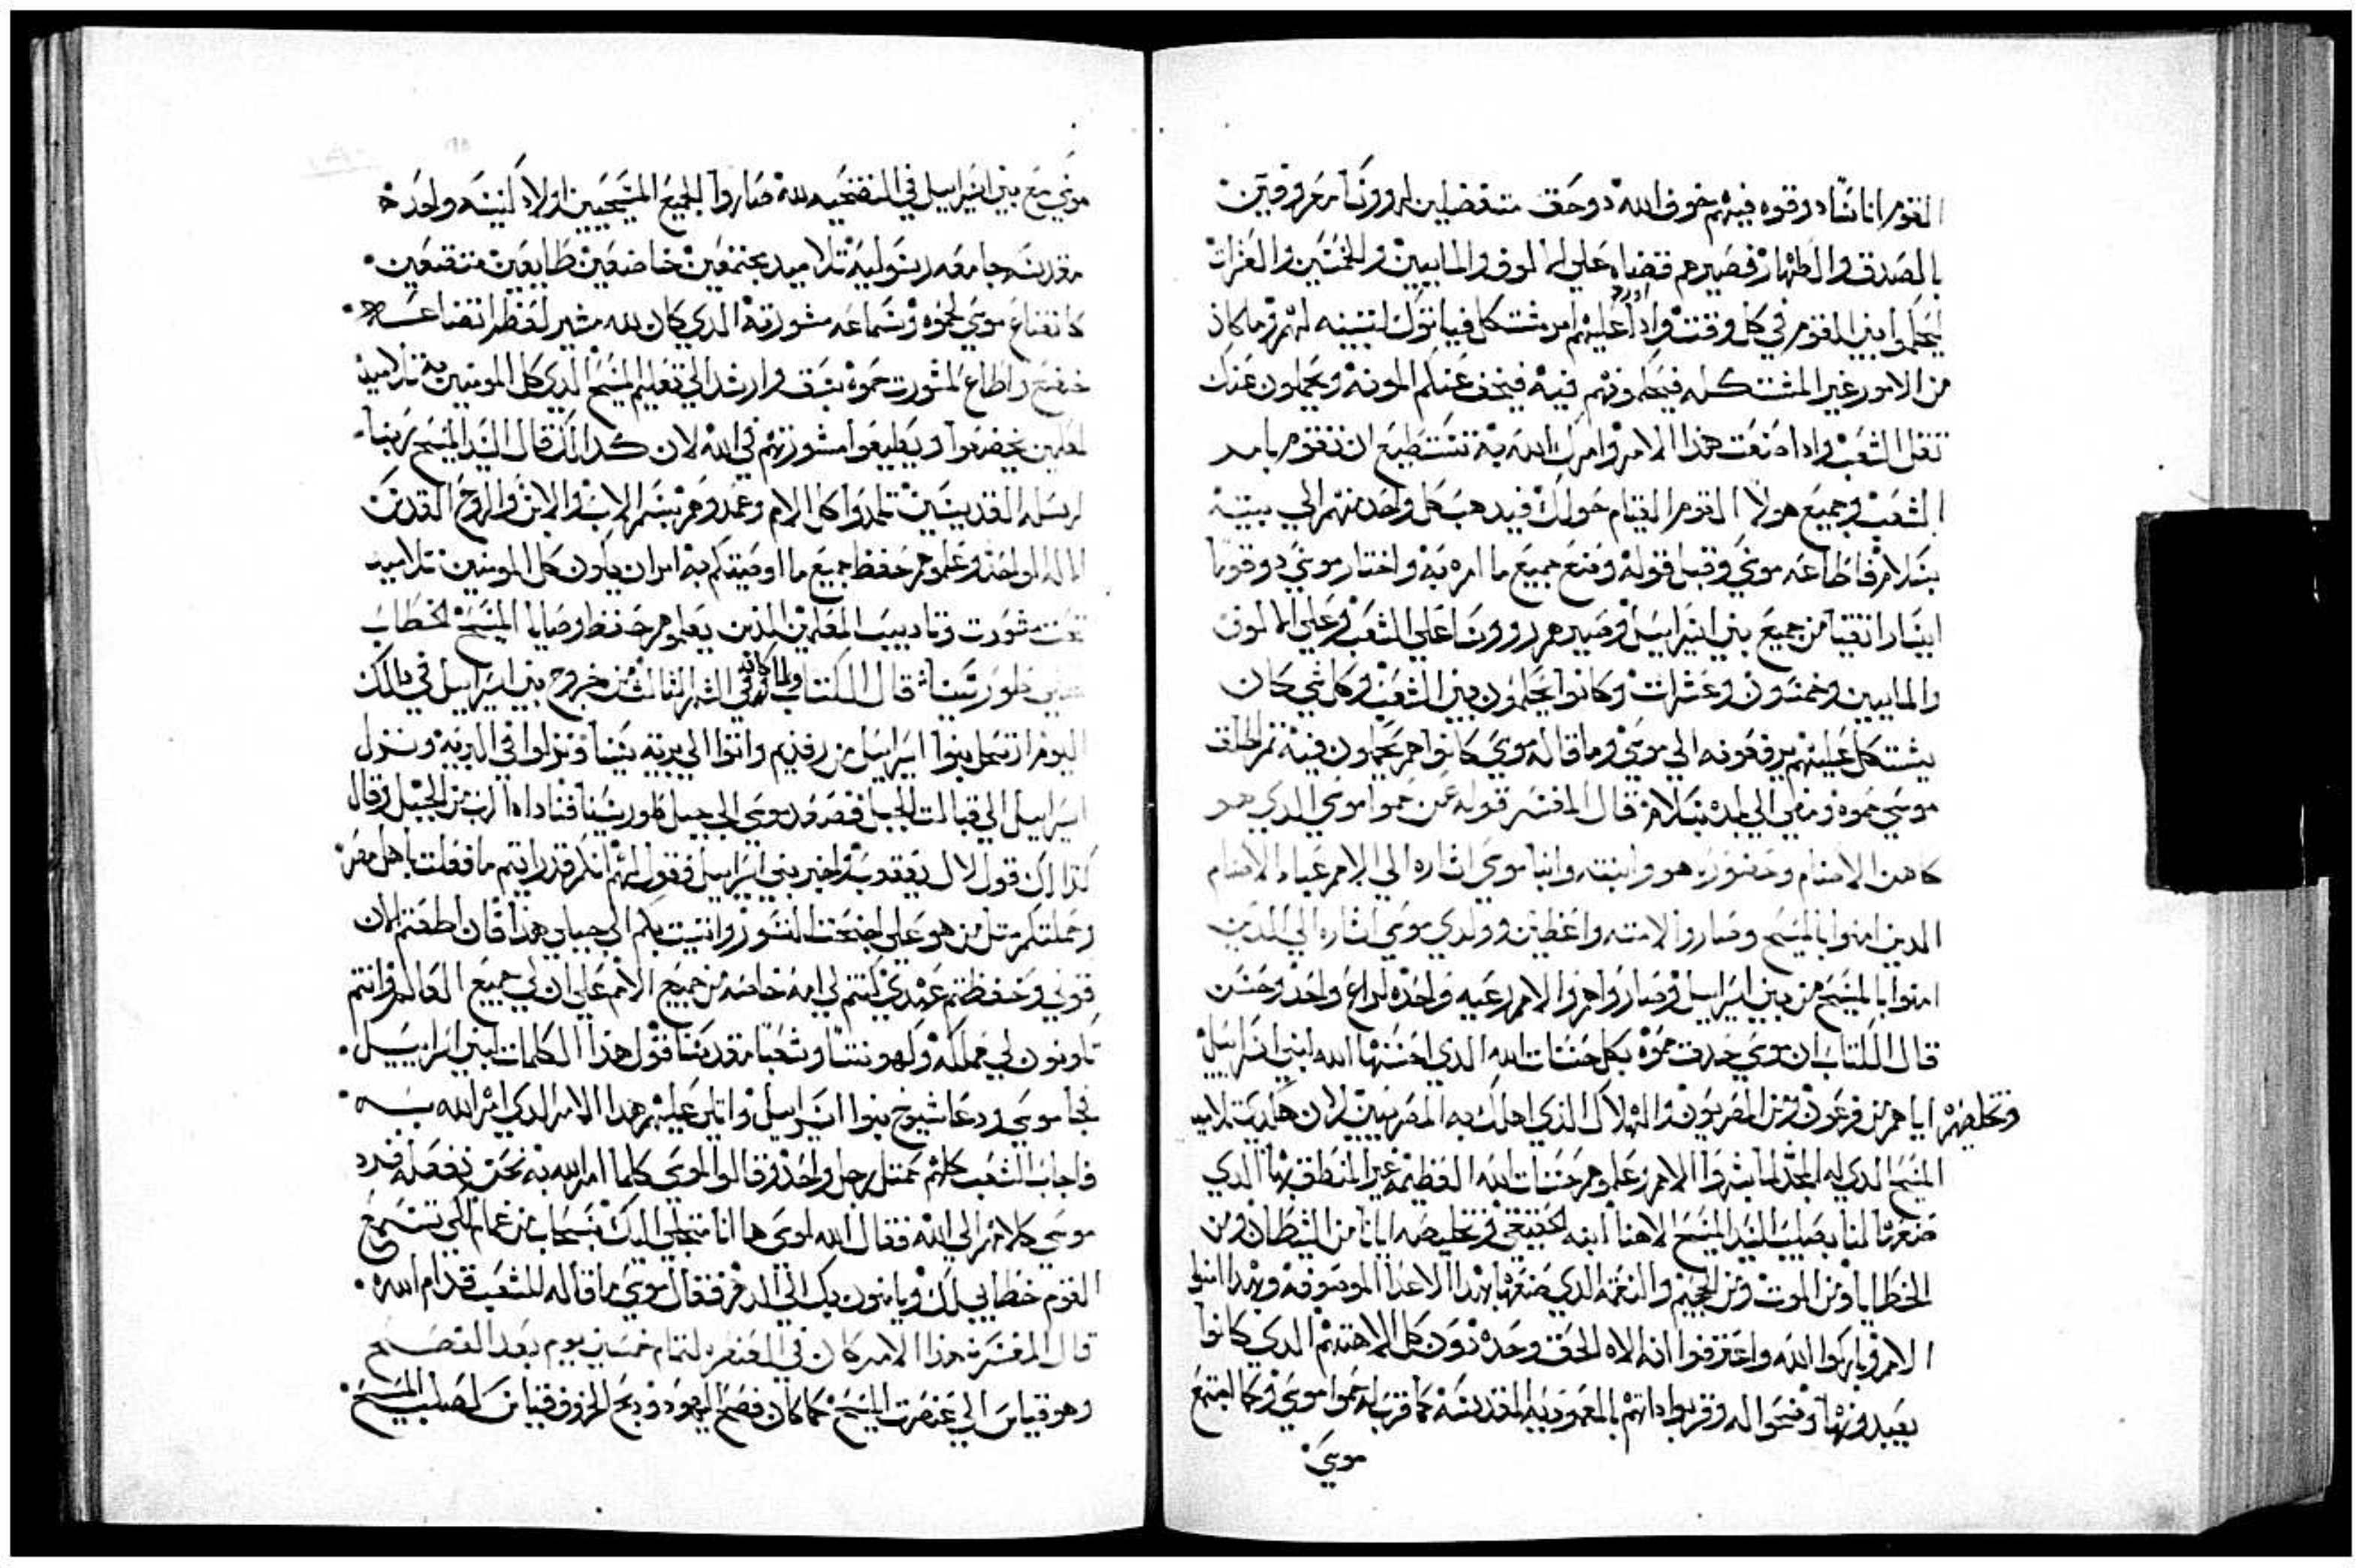 القوم اناسًا دوقوه فيهم خوف الله دوحق متفضلين له روونا معروفين
بالصدق والطهاره فصيرهم قضاه علي الالوف والمايين والخمسين والعشرات
ليحكموا بين القوم في كل وقت واذا ورد عليهم امر مشتكل فياتوك لتبينه لهم وما كان
من الامور غير المشتكله فيحكمونهم فيه فيخف عنكم المونه ويحملون عنك
تقل الشعب واذا صنعت هذا الامر وامرك الله به تستطيع ان تقوم بامر
الشعب وجميع هولا القوم القيام حولك فيدهب كل واحد منهم الي بيته
بسلام فاطاعه موسي وقبل قوله وصنع جميع ما امره به واختار موسي دوقوه
ايسار اتقيا من جميع بني اسراييل وصيرهم روونا علي الشعب وعلي الالوف
والمايين وخمسون وعشرات وكانوا يحكمون بين الشعب وكل شي كان
يشتكل عليهم يرفعونه الي موسي وما قاله موسي كانوا هم يحكمون فيه ثم اطلق
موسي حموه ومضي الي بلده بسلام قال المفسر قوله عن حموا موسي الدي هو
كاهن الاصنام وحضوره هو وابنته وابنا موسي اشاره الي الامم عباد الاصنام
الدين امنوا بالمسيح وصاروا لامته واعطين وولدي موسي اشاره الي الدين
امنوا بالمسيح من بني اسراييل وصاروا هم والامم رعيه واحده لراع واحد وحسن
قال الكتاب ان موسي حدت حموه بكل حسنات الله الدي احسنها الله لبني اسراييل
وتخلصهم اياهم من فرعون ومن المصريون والهلاك الذي اهلك به المصريين لان هكدي تلاميد
المسيح الدي له المجد لما بشروا الامم وعلموهم حسنات الله العظيمه غير المنطق بها الدي
صنعها لنا بصلب السيد المسيح الاهنا ابنه الحقيقي وتخليصه ايانا من الشيطان ومن
الخطايا ومن الموت ومن الجحيم والنعمه الدي صنعها بهدا الاعدا الموصوفه وبهدا امنوا
الامم وباركوا الله واعترفوا انه الاه الحق وحده دون كل الاهتهم الدي كانوا
يعبدونها وضحوا له وقربوا داتهم بالمعموديه المقدسه كما قرب له حموا موسي وكما اجتمع
موسي
موسي مع بني اسراييل في التضحيه لله صاروا الجميع المسيحيين اولاد كنيسه واحده
مقدسه جامعه رسوليه تلاميد مجتمعين خاضعين طايعين متضعين
كاتضاع موسي لحموه وسماعه مشورته الدي كان لله مشير لعظم اتضاعه
خضع واطاع لمشورت حموه بشف وارشد الي تعليم المسيح الدي كل المومنين به تلاميد
لمعلمين يخضعوا ويطيعوا مشورتهم في الله لان كدالك قال السيد المسيح ربنا
لرسله القديسين تلمدوا كل الامم وعمدوهم بسم الاب والابن والروح القدس
الاله الواحد وعلموهم حفظ جميع ما اوصيتكم به امر ان يكون كل المومنين تلاميد
تحت مشورت وتاديب المعلمين الذين يعلموهم حفظ وصايا المسيح لخطاب
علي طور سينا قال الكتاب ولما كان في الشهر الثالث من خروج بني اسراييل في دالك
اليوم ارتحل بنوا اسراييل من رفديم واتوا الي برية سينا ونزلوا في البريه ونزل
اسراييل الي قبالت الجبل فصعد موسي الي جبل طور سينا فناداه الرب من الجبل وقال
كدالك قول لال يعقوب واخبر بني اسراييل وقول لهم انكم قد رايتم ما فعلت باهل مصر
وحملتكم مثل من هو علي اجنحت النسور واتيت بكم الي جبلي هذا فان اطعتم الان
قولي وحفظتم عهدي كنتم لي امه خاصه من جميع الامم علي ان لي جميع العالم وانتم
تكونون لي مملكه وكهونتا وشعبا مقدسا قول هذا الكلمات لبني اسراييل
فجا موسي ودعا شيوخ بنوا اسراييل واتلى عليهم هذا الامر الدي امر الله به
فاجاب الشعب كلهم كمتل رجل واحد وقالوا لموسي كلما امر الله به نحن نفعله فرد
موسي كلامهم الي الله فقال الله لموسي ها انا متجلي اليك بسحاب من غمام لكي تسمع
القوم خطابي لك ويامنون بك الي الدهر فقال موسي ما قاله للشعب قدام الله
قال المفسر هذا الامر كان في العنصره لتمام خمسين يوم بعد الفصح
وهو قياس الي عنصرت المسيح كما كان فصح اليهود ودبح الخروف قياس لصلب المسيح